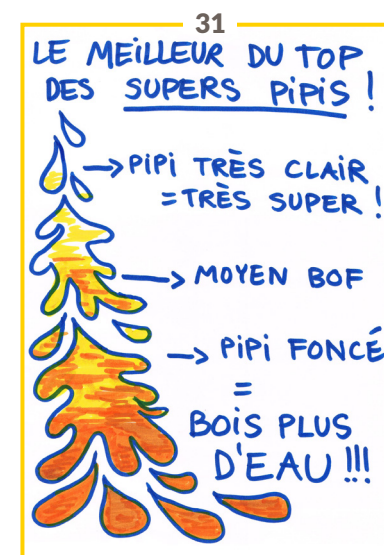 31
LE MEiLLEUR DU TOP
DES SUPERS PiPiS !
→ PiPi TRÈS CLAiR
= TRÈS SUPER !
→ MOYEN BOF
→ PiPi FONCÉ
=
BOiS PLUS
D'EAU !!!